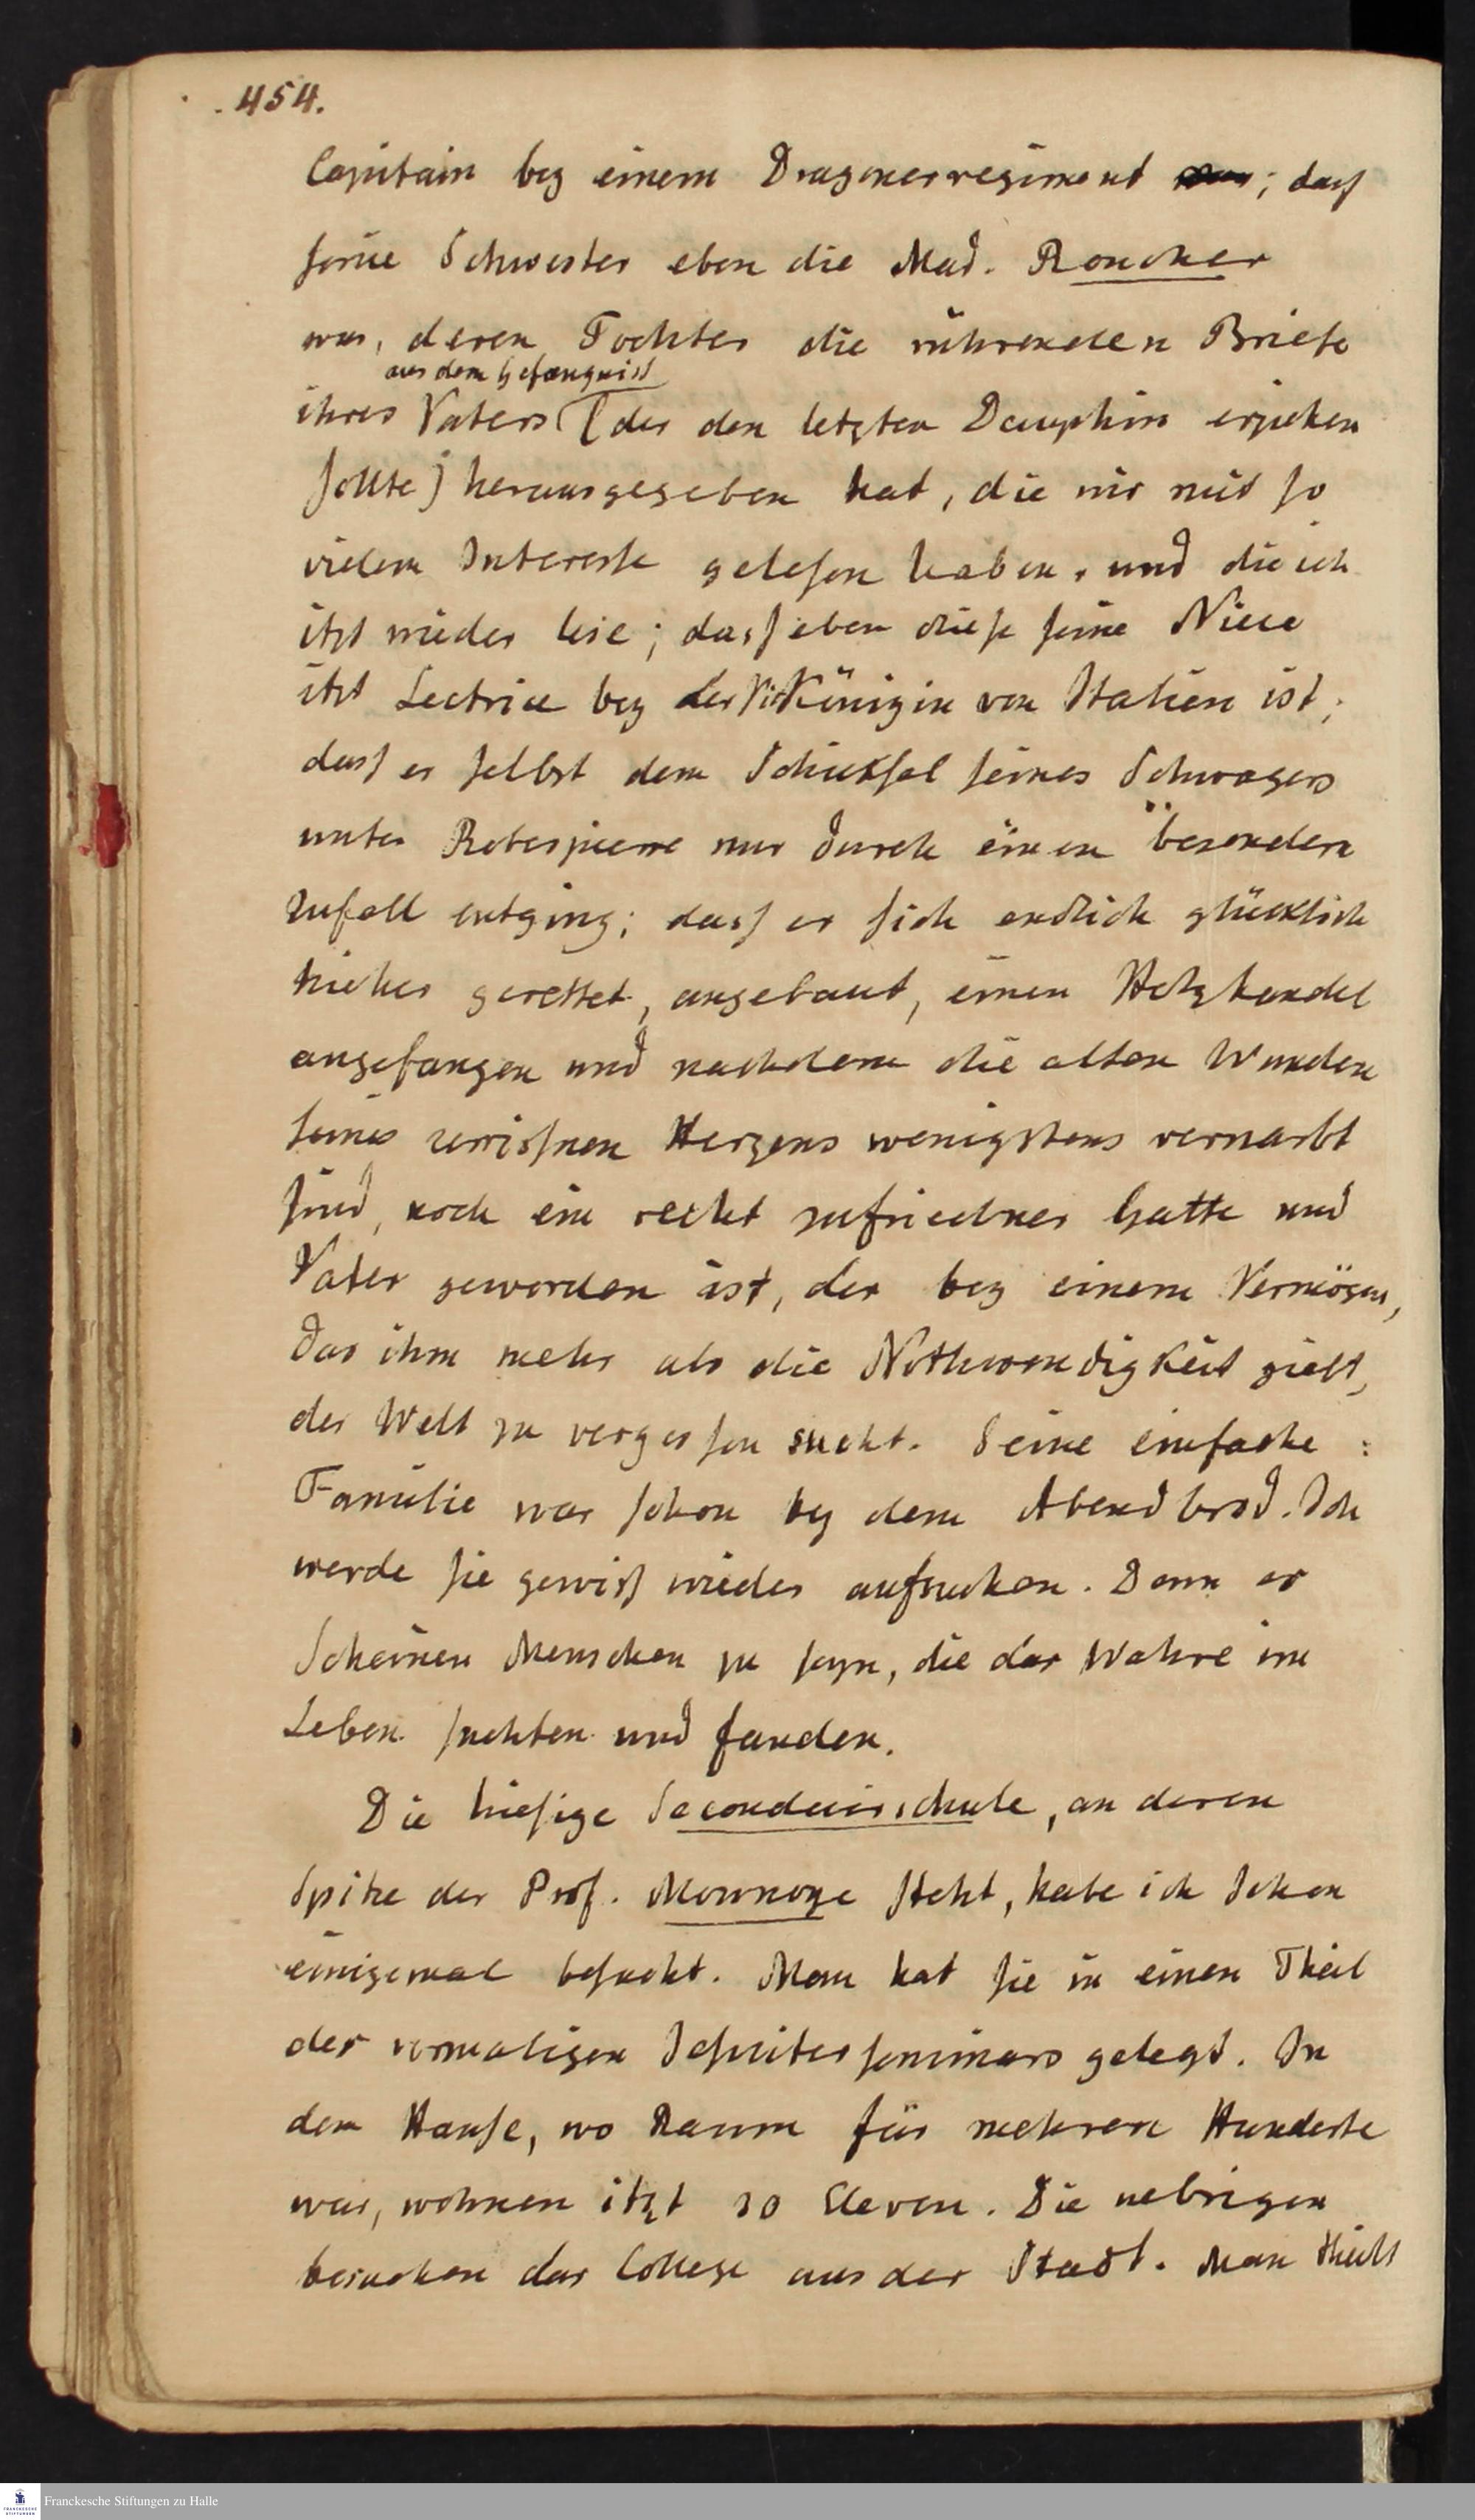 454.
Capitain bey einem Dragonerregiment; dass
seine Schwester eben die Mad. Roucher
war, deren Tochter die rührenden Briefe
aus dem Gefängniss
ihres Vaters (der den letzten Dauphin erziehen
sollte) herausgegeben hat, die wir mit so
vielem Interesse gelesen haben, und die ich
itzt wieder lese; dass eben diese seine Niece
itzt Lectrice bey der Vicekönigin von Italien ist;
dass er selbst dem Schicksal seines Schwagers
unter Robespierre nur durch einen besondern
Zufall entging; dass er sich endlich glücklich
hieher gerettet, angebaut, einen Holzhandel
angefangen und nachdem die alten Wunden
seines zerrissnen Herzens wenigstens vernarbt
sind, noch ein recht zufriedner Gatte und
Vater geworden ist, der bey einem Vermögen,
das ihm mehr als die Nothwendigkeit giebt,
der Welt zu vergessen sucht. Seine einfache
Familie war schon bey dem Abendbrod. Ich
werde sie gewiss wieder aufsuchen. Denn es
scheinen Menschen zu seyn, die das Wahre im
Leben suchten und fanden.
Die hiesige Secondairschule, an deren
Spitze der Prof. steht, habe ich schon
einigemal besucht. Man hat sie in einen Theil
des vormaligen Jesuiterseminars gelegt. In
dem Hause, wo Raum für mehrere Hunderte
war, wohnen itzt 30 Eleven. Die uebrigen
besuchen das College aus der Stadt. Man theilt
Franckesche Stiftungen zu Halle